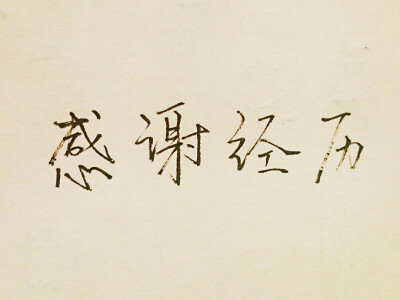 感谢经历